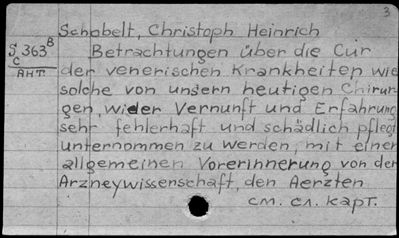 3
Schobelt, Christoph Heinrich
S 363⁸ Betrachtungen über die Cur
C
АНТ. der venerischen Krankheiten wie
solche von unsern heutigen Chirur-
gen, wider Vernunft und Erfahrung
sehr fehlerhaft und schädlich pflegt
unternommen zu werden, mit einer
allgemeinen Vorerinnerung von der
Arzneywissenschaft, den Aerzten
см. сл. карт.